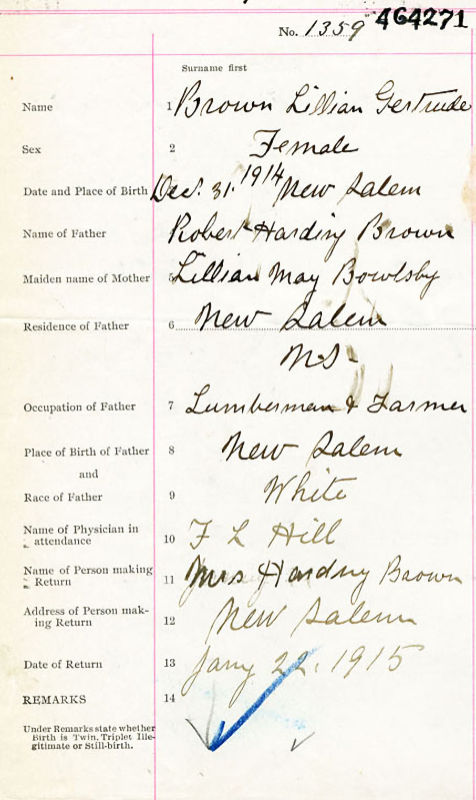 No. 1359 464271
Surname first
Name 1 Brown Lillian Gertrude
Sex 2 Female
Date and Place of Birth Dec. 31. 1914 New Salem
Name of Father Robert Harding Brown
Maiden name of Mother 5 Lillian May Bowlsby
Residence of Father 6 New Salem
N.S.
Occupation of Father 7 Lumberman & Farmer
Place of Birth of Father 8 New Salem
and
Race of Father 9 White
Name of Physician in
attendance 10 F L Hill
Name of Person making
Return 11 Mrs Harding Brown
Address of Person mak-
ing Return 12 New Salem
Date of Return 13 Jany 22. 1915
REMARKS 14
Under Remarks state whether
Birth is Twin, Triplet, Ille-
gitimate or Still-birth.